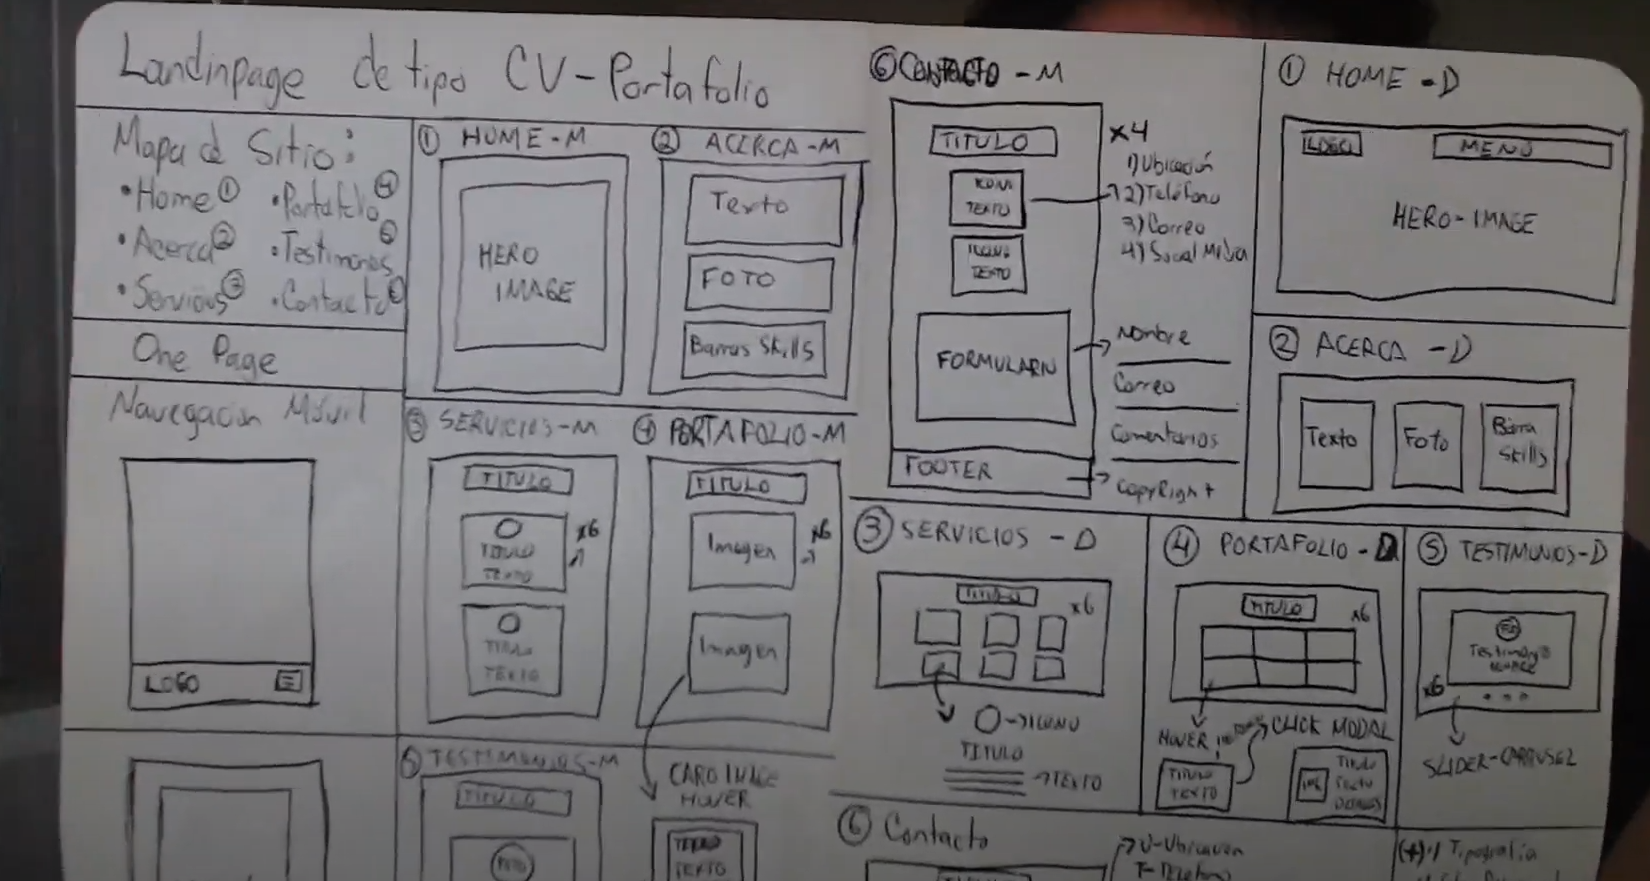 Landinpage de tipo CV-Portafolio
Mapa d Sitio:
• Home ① • Portafolio ④
• Acerca ② • Testimonios ⑤
• Servicios ③ • Contacto ⑥
One Page
Navegación Móvil
LOGO
① HOME-M
HERO
IMAGE
② ACERCA-M
Texto
FOTO
Barras Skills
③ SERVICIOS-M
TITULO
TITULO
TEXTO
x6
TITULO
TEXTO
④ PORTAFOLIO-M
TITULO
Imagen
x6
Imagen
CARD IMAGE
HOVER
TITULO
TEXTO
⑤ TESTIMONIOS-M
TITULO
FOTO
⑥ CONTACTO-M
TITULO
ICONO
TEXTO
ICONO
TEXTO
x4
1) Ubicación
2) Teléfono
3) Correo
4) Social Media
FORMULARIO
Nombre
Correo
Comentarios
FOOTER
CopyRight
① HOME-D
LOGO MENÚ
HERO-IMAGE
② ACERCA-D
Texto
Foto
Barra
Skills
③ SERVICIOS-D
TITULO
x6
ICONO
TITULO
TEXTO
④ PORTAFOLIO-D
TITULO
x6
HOVER
CLICK MODAL
TITULO
TEXTO
TITULO
⑤ TESTIMONIOS-D
x6
SLIDER-CARRUSEL
⑥ Contacto
U-Ubicación
T-Teléfono
(+) Tipografía